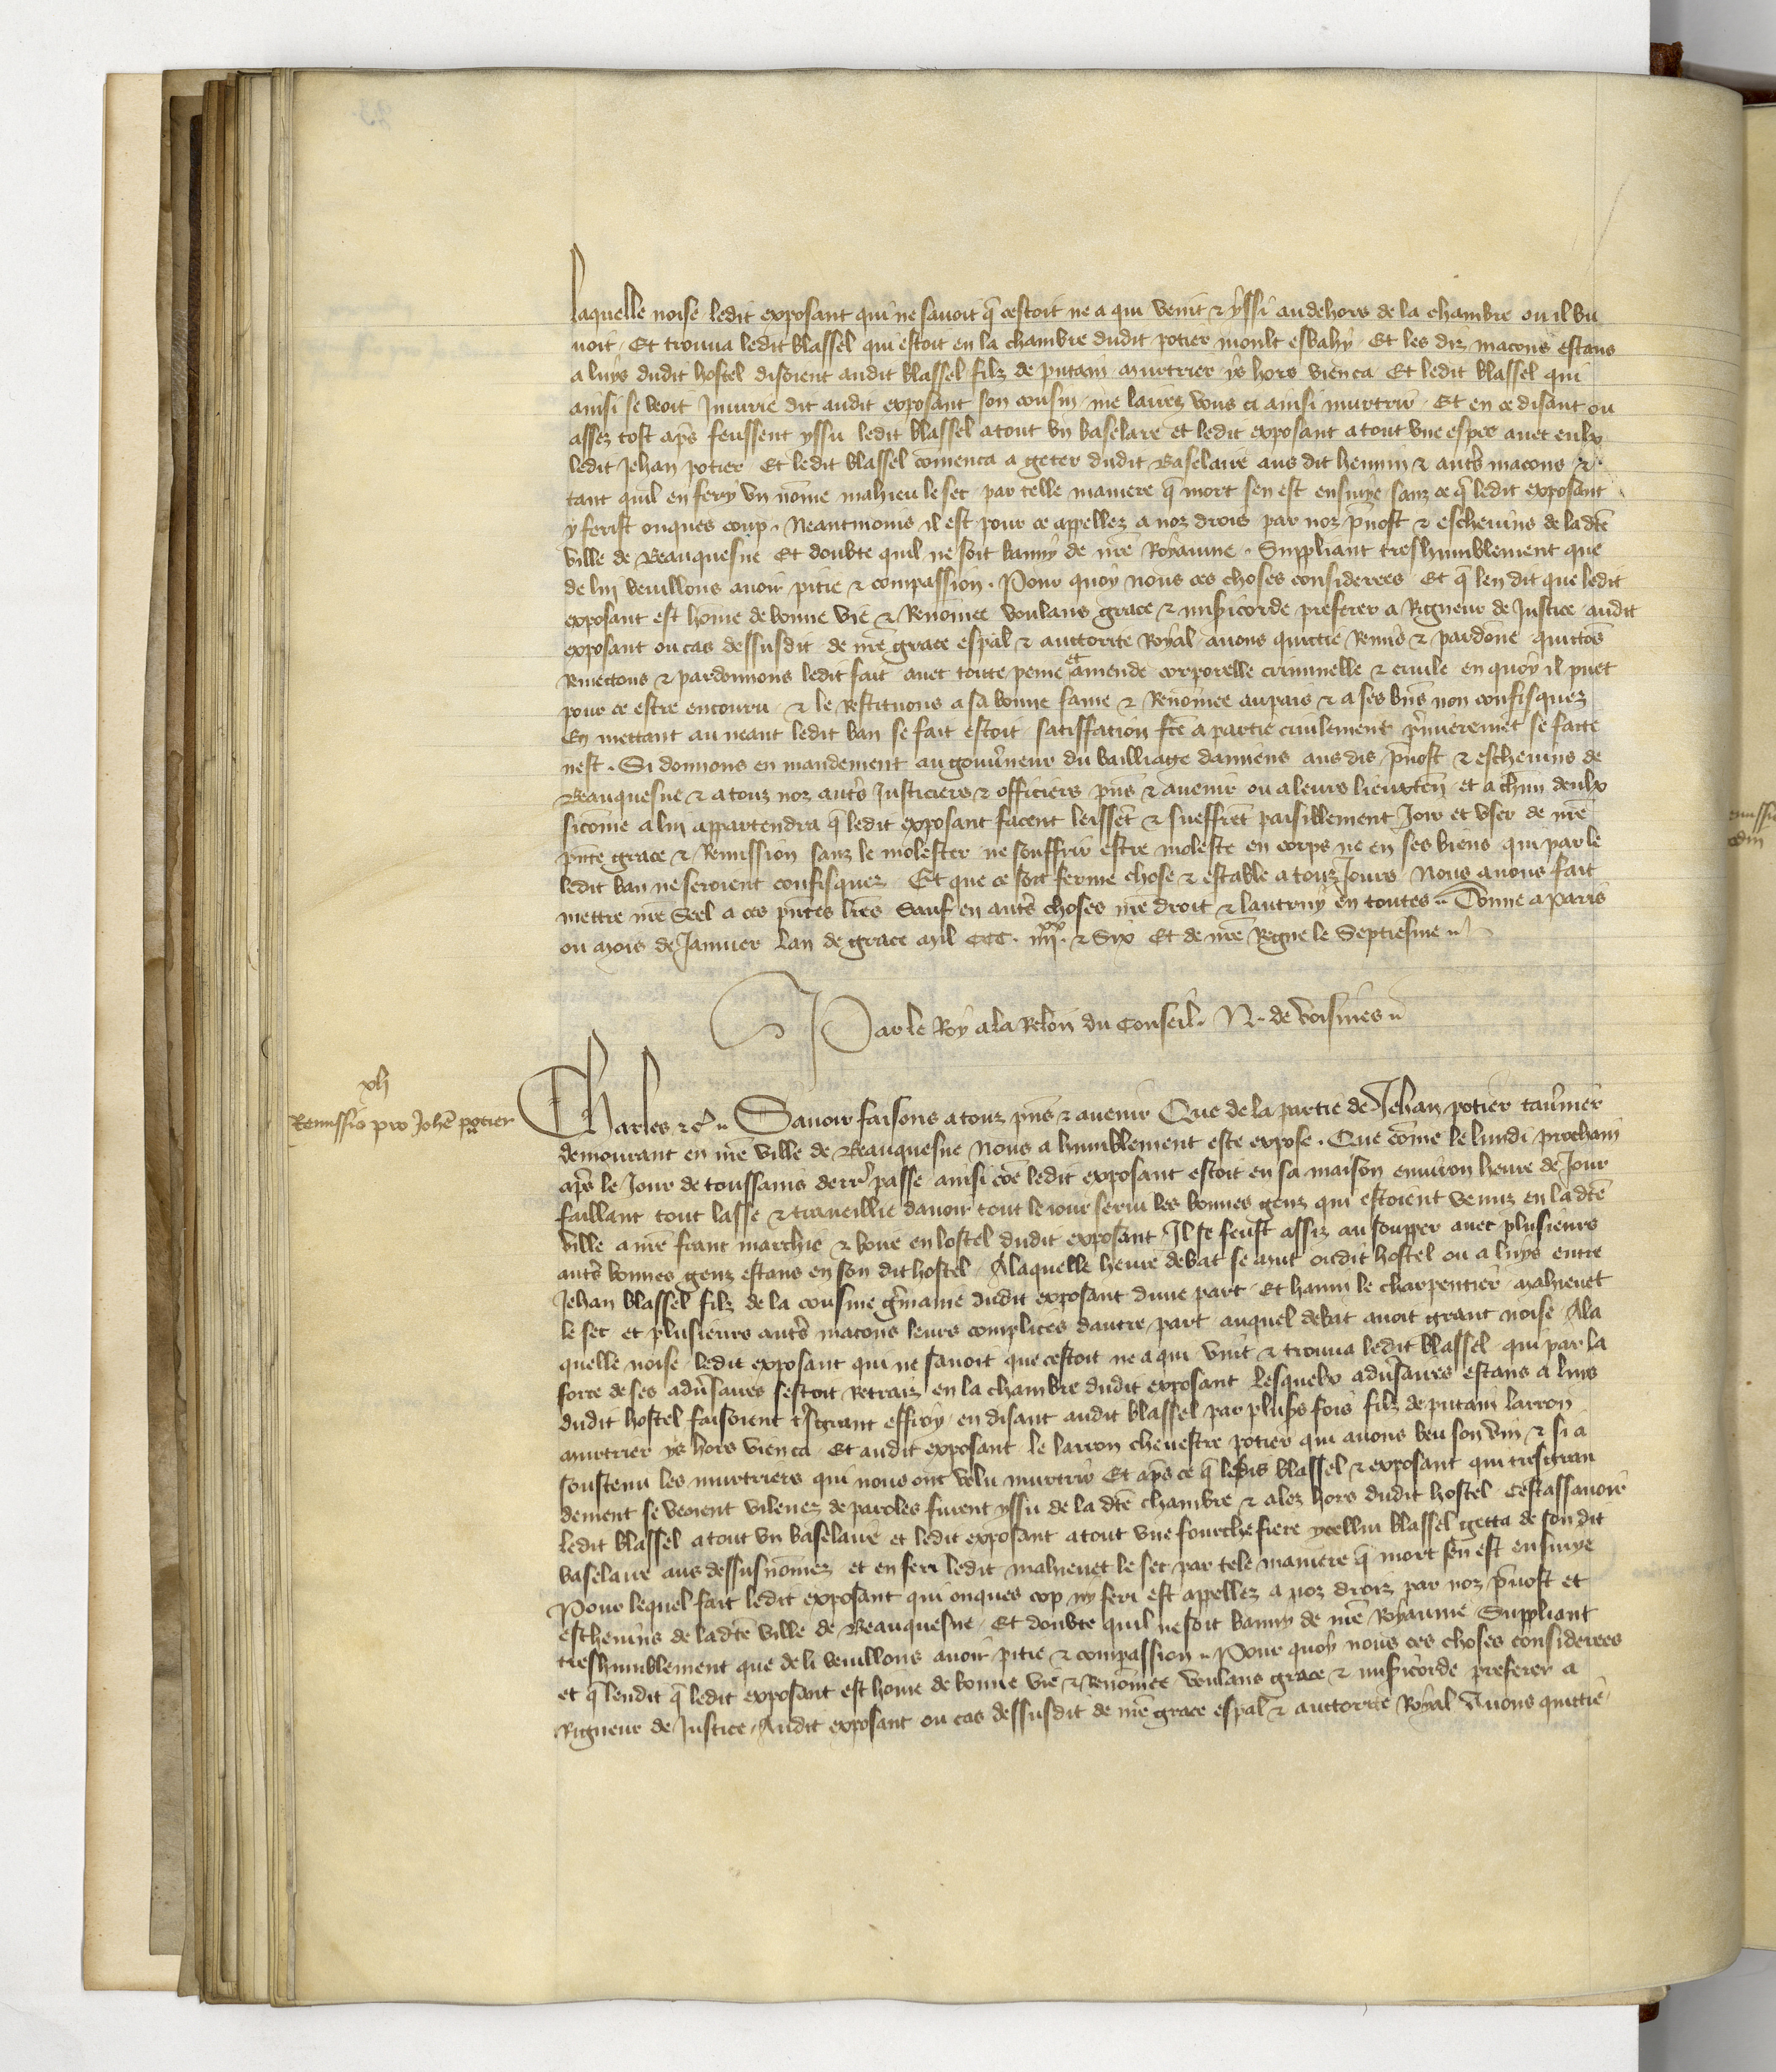 laquelle noise ledit exposant qui ne savoit q̃ cestoit ne a qui venit & yssi au dehors de la chambre ou il bu
voit Et trouva ledit blassel qui estoit en la chambre dudit potier moult esbahy Et les diz macons estans
a luys dudit hostel disoient audit blassel filz de putain murtrier ys hors vien ca Et ledit blassel qui
ainsi se veoit Iniurie dit audit exposant son cousin me lairez vous ci ainsi murtrir Et en ce disant ou
assez tost ap̃s feussent yssu ledit blassel atout vn baselare et ledit exposant atout vne espee avec eulx
ledit Jehan potier Et ledit blassel cõmenca a geter dudit Baselaire aus dit hennin & aut̃s macons &
tant quil en fery vn nõme mahieu le sec par telle maniere q̃ mort sen est ensuye sanz ce q̃ ledit exposant
y ferist onques coup . Neantmoins il est pour ce appellez a noz drois par noz p̃vost & eschevins de ladt̃e
ville de Beauquesne Et doubte quil ne soit banny de nr̃e Royaume . Suppliant treshumblement que
de lui veuillons avoir pitie & compassion . Pour quoy nous ces choses considerees Et q̃ len dit que ledit
exposant est hõme de bonne vie & Renõmee voulans grace & mis̃icorde preferer a Rigueur de Justice audit
exposant ou cas dessusdit de nr̃e grace esp̃al & auctorite Royal avons quictie Remis & pardõne quittõs
Remettons & pardonnons ledit fait avec toute peine et amende corporelle criminelle & civile en quoy il puet
pour ce estre encouru & le Restituons a sa bonne fame & Renõmee au pais & a ses biñs non confisquez
En mettant au neant ledit ban se fait estoit satisfation fc̃e a partie civilement p̃mieremẽt se faicte
nest . Si donnons en mandement au gouv̾neur du bailliage damiens aus dis p̃vost & eschevins de
Beauquesne & a touz noz aut̃s Justiciers & officiers p̃ns & avenir ou a leurs lieuxteñ et a chũn deulx
sicõme a lui appartendra q̃ ledit exposant facent leissẽt & sueffrẽt paisiblement Joir et vser de nr̃e
p̃nte grace & Remission sanz le molester ne souffrir estre moleste en corps ne en ses biens qui par le
ledit ban ne seroient confisquez Et que ce soit ferme chose & estable a touz Jours Nous avons fait
mettre nr̃e Seel a ces p̃ntes lr̃es Sauf en aut̃s choses nr̃e droit & lautruy en toutes .. Donne a Paris
ou mois de Janvier lan de grace mil CCC. iiij.xx & Six Et de nr̃e Regne le Septiesme ..
Par le Roy a la Relõn du Conseil . N. de Voisines ..
xlj
Remissio pro Joh̃e potier
Charles &c̃ .. Savoir faisons a touz p̃ns & avenir Que de la partie de Jehan potier tav̾nier
demourant en nr̃e ville de Beauquesne Nous a humblement este expose . Que cõme le lundi prochain
ap̃s le Jour de toussains derr̃ passe ainsi cõe ledit exposant estoit en sa maison environ heure de Jour
faillant tout lasse & traveillie davoir tout le iour servi les bonnes genz qui estoient venuz en ladt̃e
ville a nr̃e franc marchie & boire en lostel dudit exposant Il se feust assiz au soupper avec plusieurs
aut̃s bonnes genz estans en son dit hostel Alaquelle heure debat se mut oudit hostel ou a luys entre
Jehan blassel filz de la cousine g̾maine dudit exposant dune part Et hanin le charpentier mahieuet
le sec et plusieurs aut̃s macons leurs complices dautre part auquel debat avoit grant noise Ala
quelle noise ledit exposant qui ne savoit que cestoit ne a qui vint & trouva ledit blassel qui par la
force de ses adv̾saires sestoit Retraiz en la chambre dudit exposant Lesquelx adv̾saires estans a luis
dudit hostel faisoient t̾sgrant effroy en disant audit blassel par plus̾s fois filz de putain larron
murtrier ys hors vien ca Et audit exposant le larron chevestre potier qui avons beu son vin & si a
soustenu les murtriers qui nous ont volu murtrir Et ap̃s ce q̃ lesdis blassel & exposant qui tresgran
dement se veoient vilenez de paroles furent yssu de la dt̃e chambre & alez hors dudit hostel Cestassavoir
ledit blassel atout vn baselaire et ledit exposant atout vne fourchefiere ycellui blassel getta de son dit
baselaire aus dessus nõmez et en feri ledit mahieuet le sec par tele maniere q̃ mort sen est ensuiye
Pour lequel fait ledit exposant qui onques cop ny feri est appellez a noz droiz par noz p̃vost et
eschevins de ladt̃e ville de Beauquesne Et doubte quil ne soit banny de nr̃e Royaume Suppliant
treshumblement que de li veuillons avoir pitie & compassion .. Pour quoy nous ces choses considerees
et q̃ len dit q̃ ledit exposant est hõme de bonne vie & Renõmee voulans grace & mis̃icorde preferer a
Rigueur de Justice Audit exposant ou cas dessusdit de nr̃e grace esp̃al & auctorite Royal Avons quictie